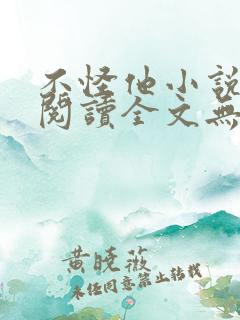 不怪他小說
閱讀全文無
黃曉薇
未经同意禁止转载